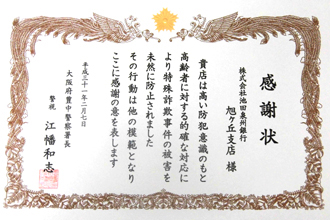 感謝状
株式会社池田泉州銀行
旭ヶ丘支店 様
貴店は高い防犯意識のもと
高齢者に対する的確な対応に
より特殊詐欺事件の被害を
未然に防止されました
その行動は他の模範となり
ここに感謝の意を表します
平成三十一年二月七日
大阪府豊中警察署長
警視 江幡和志